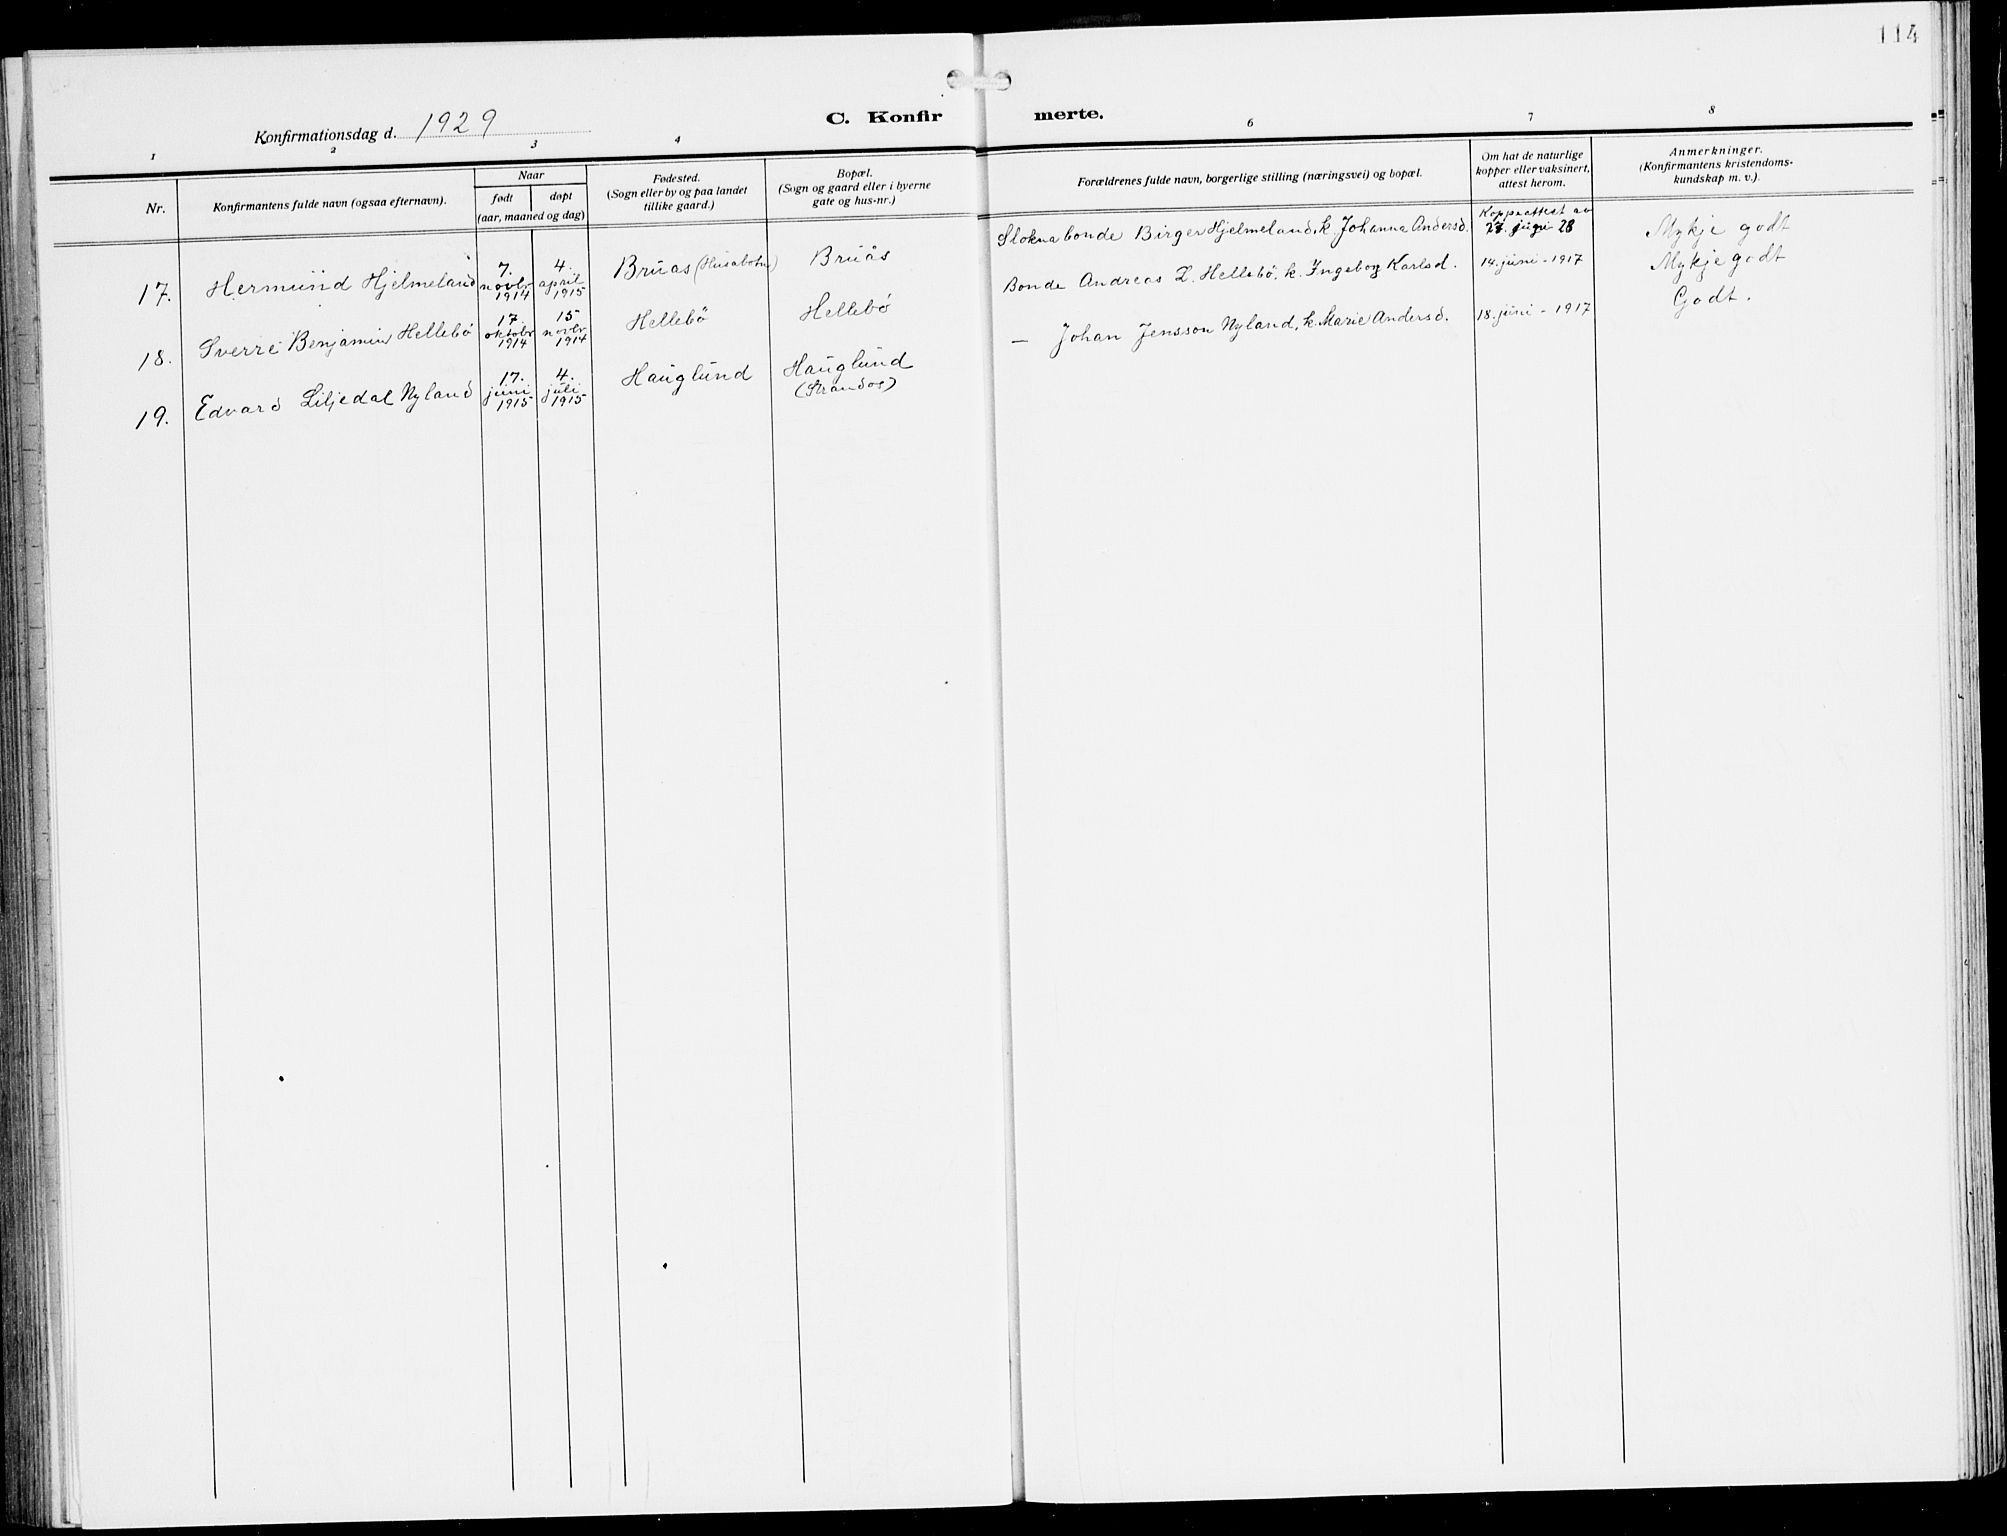 114
Konfirmationsdag d. 1929
C. Konfir merte.
1 2 3 4 6 7 8
Nr.
Konfirmantens fulde navn (ogsaa efternavn).
Naar
født døpt
(aar, maaned og dag)
Fødested.
(Sogn eller by og paa landet
tillike gaard.)
Bopæl.
(Sogn og gaard eller i byerne
gate og hus-nr.)
Forældrenes fulde navn, borgerlige stilling (næringsvei) og bopæl.
Om hat de naturlige
kopper eller vaksinert,
attest herom.
Anmerkninger.
(Konfirmantens kristendoms-
kundskap m. v.).
17. Hermund Hjelmeland
7.
novbr
1914
4.
april
1915
Bruås (Husabotn)
Bruås
bonde Birger Hjelmeland, k. Johanna Andersd.
Koppeattest av
27. juni 28
Mykje godt
18. Sverre Benjamin Hellebø
17.
oktobr
1914
15
novbr
1914
Hellebø
Hellebø
Bonde Andreas L. Hellebø, k. Ingebog Karlsd.
14. juni - 1917
Mykje godt
19. Edvard Liljedal Nyland
17.
juni
1915
4.
juli
1915
Hauglund
Hauglund
(Strandos)
— Johan Jensson Nyland, k. Marie Andersd.
18. juni - 1917
Godt.